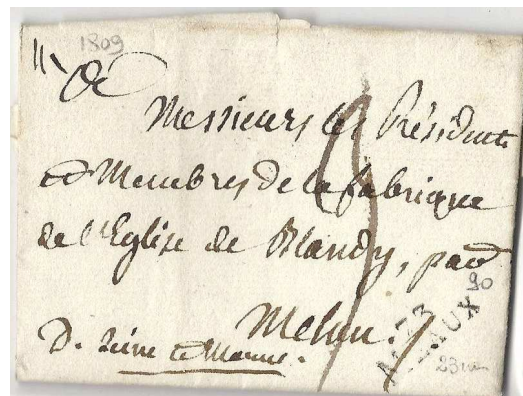 1809
A
Messieurs les Présidents
et Membres de la fabrique
de l'Eglise de Blandy, par
90
Melun.
73
MEAUX
D. Seine et Marne.